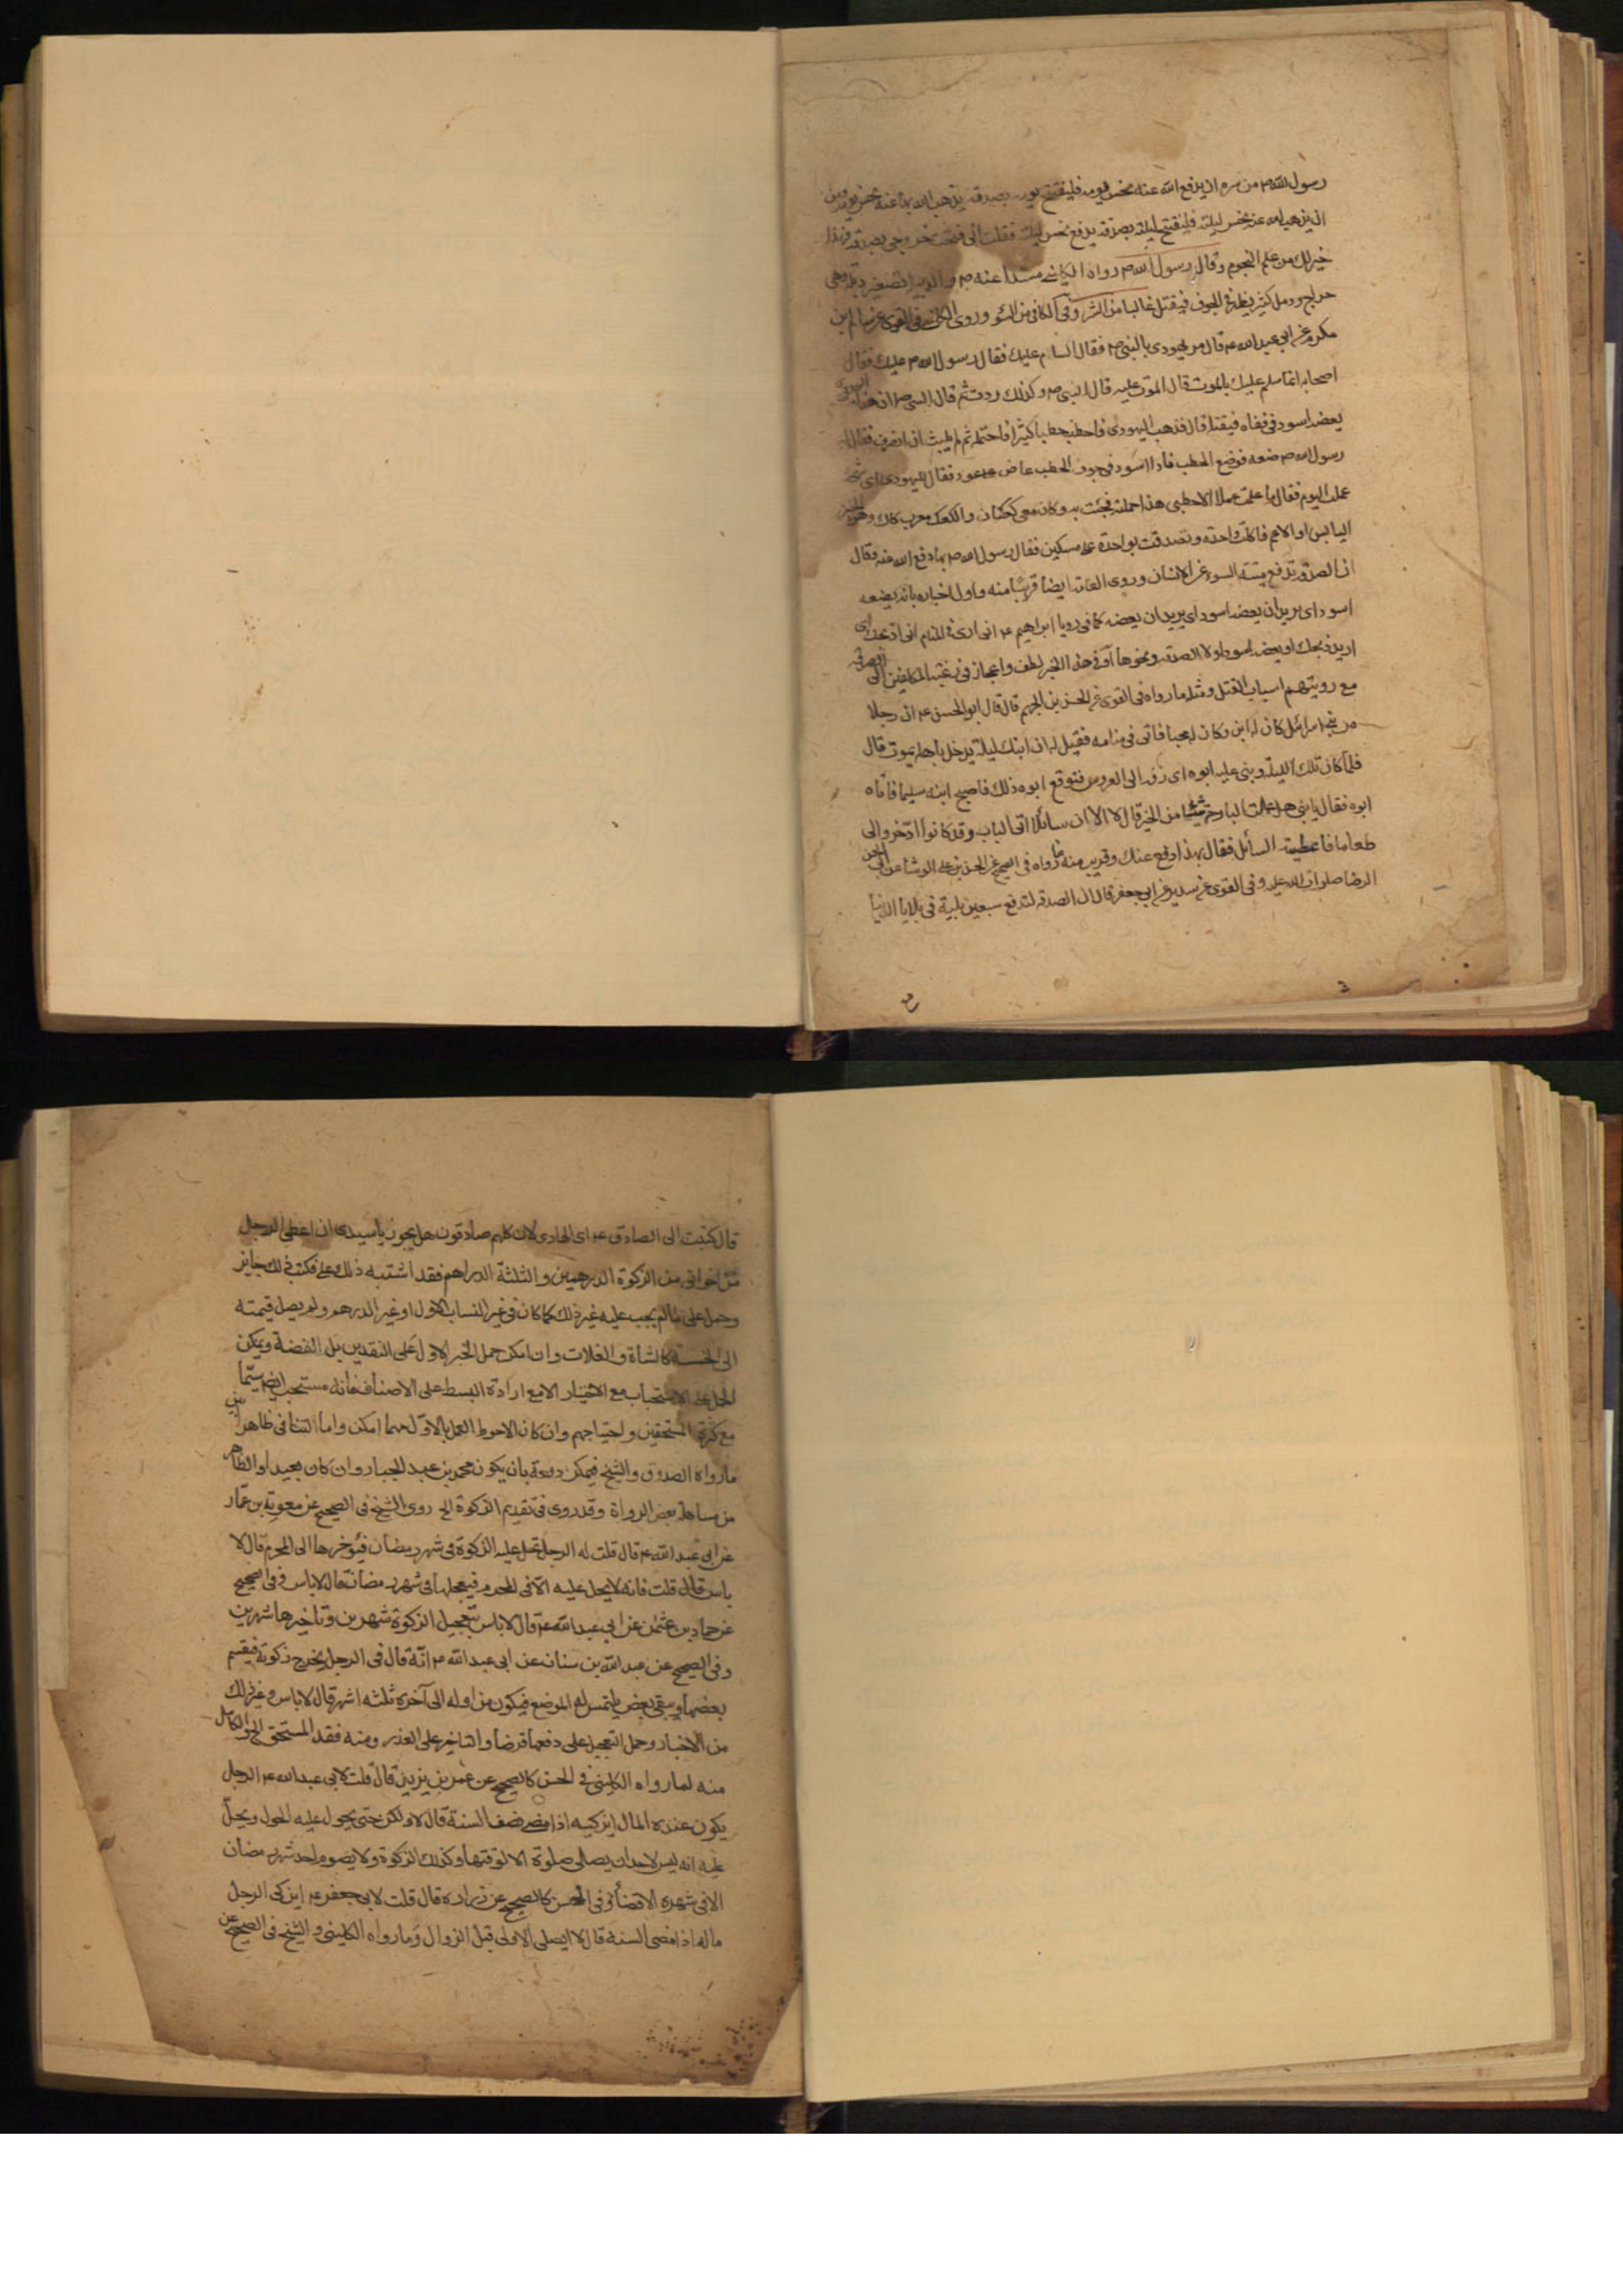 رسول الله ص من سره ان يدفع الله عنه نحس يومه فليفتتح يومه بصدقة يذهب الله بها عنه نحس يومه ومن
ان يذهب الله عنه نحس ليلته فليفتتح ليلته بصدقة يدفع نحس ليلته فقلت اني فتحت خروجي بصدقة فهذا
خير لك من علم النجوم وقال رسول الله ص رواه الكليني مسندا عنه ص والدبيلة
خراج ودمل كثير يظهر في الجوف فيقتل غالبا من الشر وفي الكافي من السوء وروى الكليني في القوي عن سالم بن
مكرم عن ابي عبد الله ع قال مر يهودي بالنبي ص فقال السام عليك فقال رسول الله ص عليك فقال
اصحابه انما سلم عليك بالموت قال الموت عليه قال النبي ص وكذلك رددت ثم قال النبي ص ان هذا اليهودي
يعضه اسود في قفاه فيقتله قال فذهب اليهودي فاحتطب حطبا كثيرا فاحتمله ثم لم يلبث ان انصرف فقال له
رسول الله ص ضعه فوضع الحطب فاذا اسود في جوف الحطب عاض على عود فقال لليهودي اي شيء
عملت اليوم فقال ما عملت عملا الا حطبي هذا احملته فجئت به وكان معي كعكتان والكعك معرب كاك وهو الخبز
اليابس او الاعم فاكلت واحدة وتصدقت بواحدة على مسكين فقال رسول الله ص بها دفع الله عنه وقال
ان الصدقة تدفع ميتة السوء عن الانسان وروى العامة ايضا قريبا منه واول اخباره بانه يعضه
اسود اي يريد ان يعضه اسود اي يريد ان يعضه كما في رؤيا ابراهيم ع اني ارى في المنام اني اذبحك اي
اريد ذبحك او يعضه اسود لولا الصدقة ونحوها او في هذا الخبر لطف واعجاز في رغبة المكلفين الى الصدقة
مع رؤيتهم اسباب القتل ومثله ما رواه في القوي عن الحسن بن الجهم قال قال ابو الحسن ع ان رجلا
من بني اسرائل كان له ابن وكان له محبا فاتي في منامه فقيل له ان ابنك ليلة يدخل باهله يموت قال
فلما كان تلك الليلة وبنى عليه ابوه اي زفه الى العروس فتوقع ابوه ذلك فاصبح ابنه سليما فاتاه
ابوه فقال يا بني هل عملت البارحة شيئا من الخير قال لا الا ان سائلا اتى الباب وقد كانوا ادخروا لي
طعاما فاعطيته السائل فقال بهذا دفع عنك وقريب منه ما رواه في الصحيح عن الحسن بن علي الوشا عن ابي الحسن
الرضا صلوات الله عليه وفي القوي عن سدير عن ابي جعفر قال ان الصدقة لتدفع سبعين بلية في بلايا الدنيا
قال كتبت الى الصادق ع اي الهادي لان كلهم صادقون هل يجوز يا سيدي ان اعطي الرجل
من اخواني من الزكوة الدرهمين والثلثة الدراهم فقد اشتبه ذلك علي فكتب ذلك جايز
وحمل على ما لم يجب عليه غير ذلك كما كان في غير النصاب الاول او غير الدرهم ولم يصل قيمته
الى الخمسة كالشاة والغلات وان امكن حمل الخبر الاول على النقدين بل الفضة ويمكن
الحمل على الاستحباب مع الاختيار الا مع ارادة البسط على الاصناف فانه مستحب ايضا سيما
مع كثرة المستحقين واحتياجهم وان كان الاحوط العمل بالاول مهما امكن واما التنافي ظاهرا بين
ما رواه الصدوق والشيخ فيمكن دفعه بان يكون محمد بن عبد الجبار وان كان بعيدا والظاهر
من تساهل بعض الرواة وقد روي في تقديم الزكوة الخ روى الشيخ في الصحيح عن معوية بن عمار
عن ابي عبد الله ع قال قلت له الرجل تحل عليه الزكوة في شهر رمضان فيؤخرها الى المحرم قال لا
باس قال قلت فانه لا يحل عليه الا في المحرم فيعجلها في شهر رمضان قال لا باس وفي الصحيح
عن حماد بن عثمان عن ابي عبد الله ع قال لا باس بتعجيل الزكوة شهرين وتاخيرها شهرين
وفي الصحيح عن عبد الله بن سنان عن ابي عبد الله ع انه قال في الرجل يخرج زكوته فيقسم
بعضها ويبقى بعض يلتمس له الموضع فيكون من اوله الى آخره ثلثة اشهر قال لا باس وغير ذلك
من الاخبار وحمل التعجيل على دفعها قرضا والتاخير على العذر ومنه فقد المستحق الكامل
منه لما رواه الكليني في الحسن كالصحيح عن عمر بن يزيد قال قلت لابي عبد الله ع الرجل
يكون عنده المال ايزكيه اذا مضى نصف السنة قال لا ولكن حتى يحول عليه الحول ويحل
عليه انه ليس لاحد ان يصلي صلوة الا لوقتها وكذلك الزكوة ولا يصوم احد شهر رمضان
الا في شهره الا قضأ وفي الحسن كالصحيح عن زرارة قال قلت لابي جعفر ع ايزكي الرجل
ماله اذا مضى السنة قال لا ايصلي الاولى قبل الزوال وما رواه الكليني والشيخ في الصحيح عن